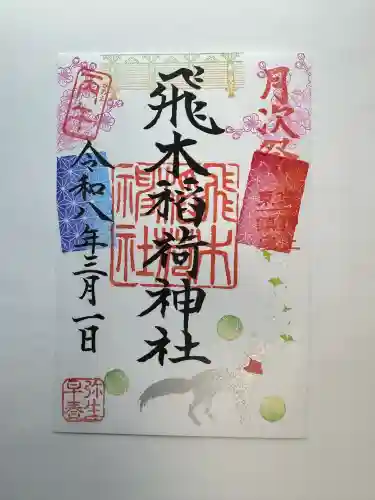 月次祭
飛木稲荷神社
飛木
稲荷
神社
令和八年三月一日
弥生
早春